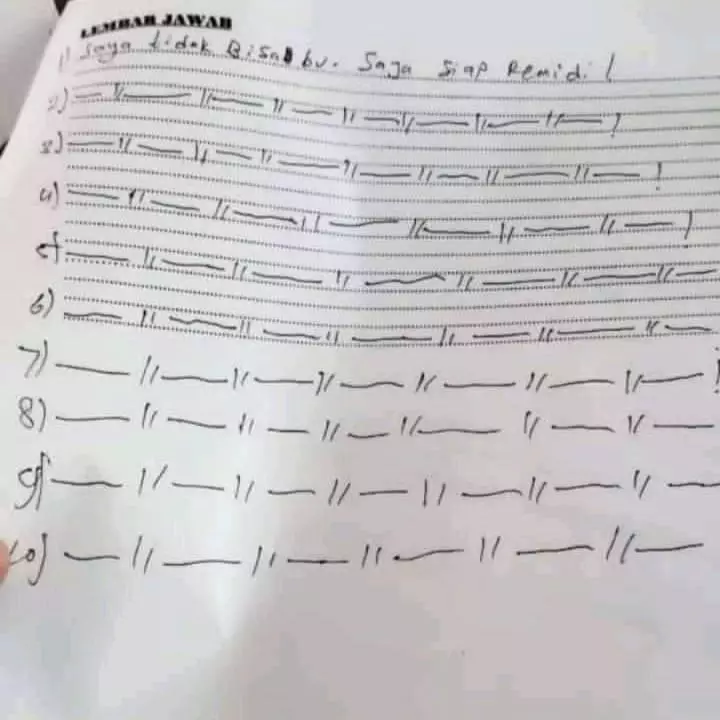 LEMBAR JAWAB
1) Saya tidak Bisa bu. Saya siap Remidi !
2) — // — // — // — // — // — // — // — !
3) — // — // — // — // — // — // — // — !
4) — // — // — // — // — // — // — !
5) — // — // — // — // — // — // — // —
6) — // — // — // — // — // — // — // —
7) — // — // — // — // — // — // — !
8) — // — // — // — // — // — // —
9) — // — // — // — // — // — // —
10) — // — // — // — // — // —